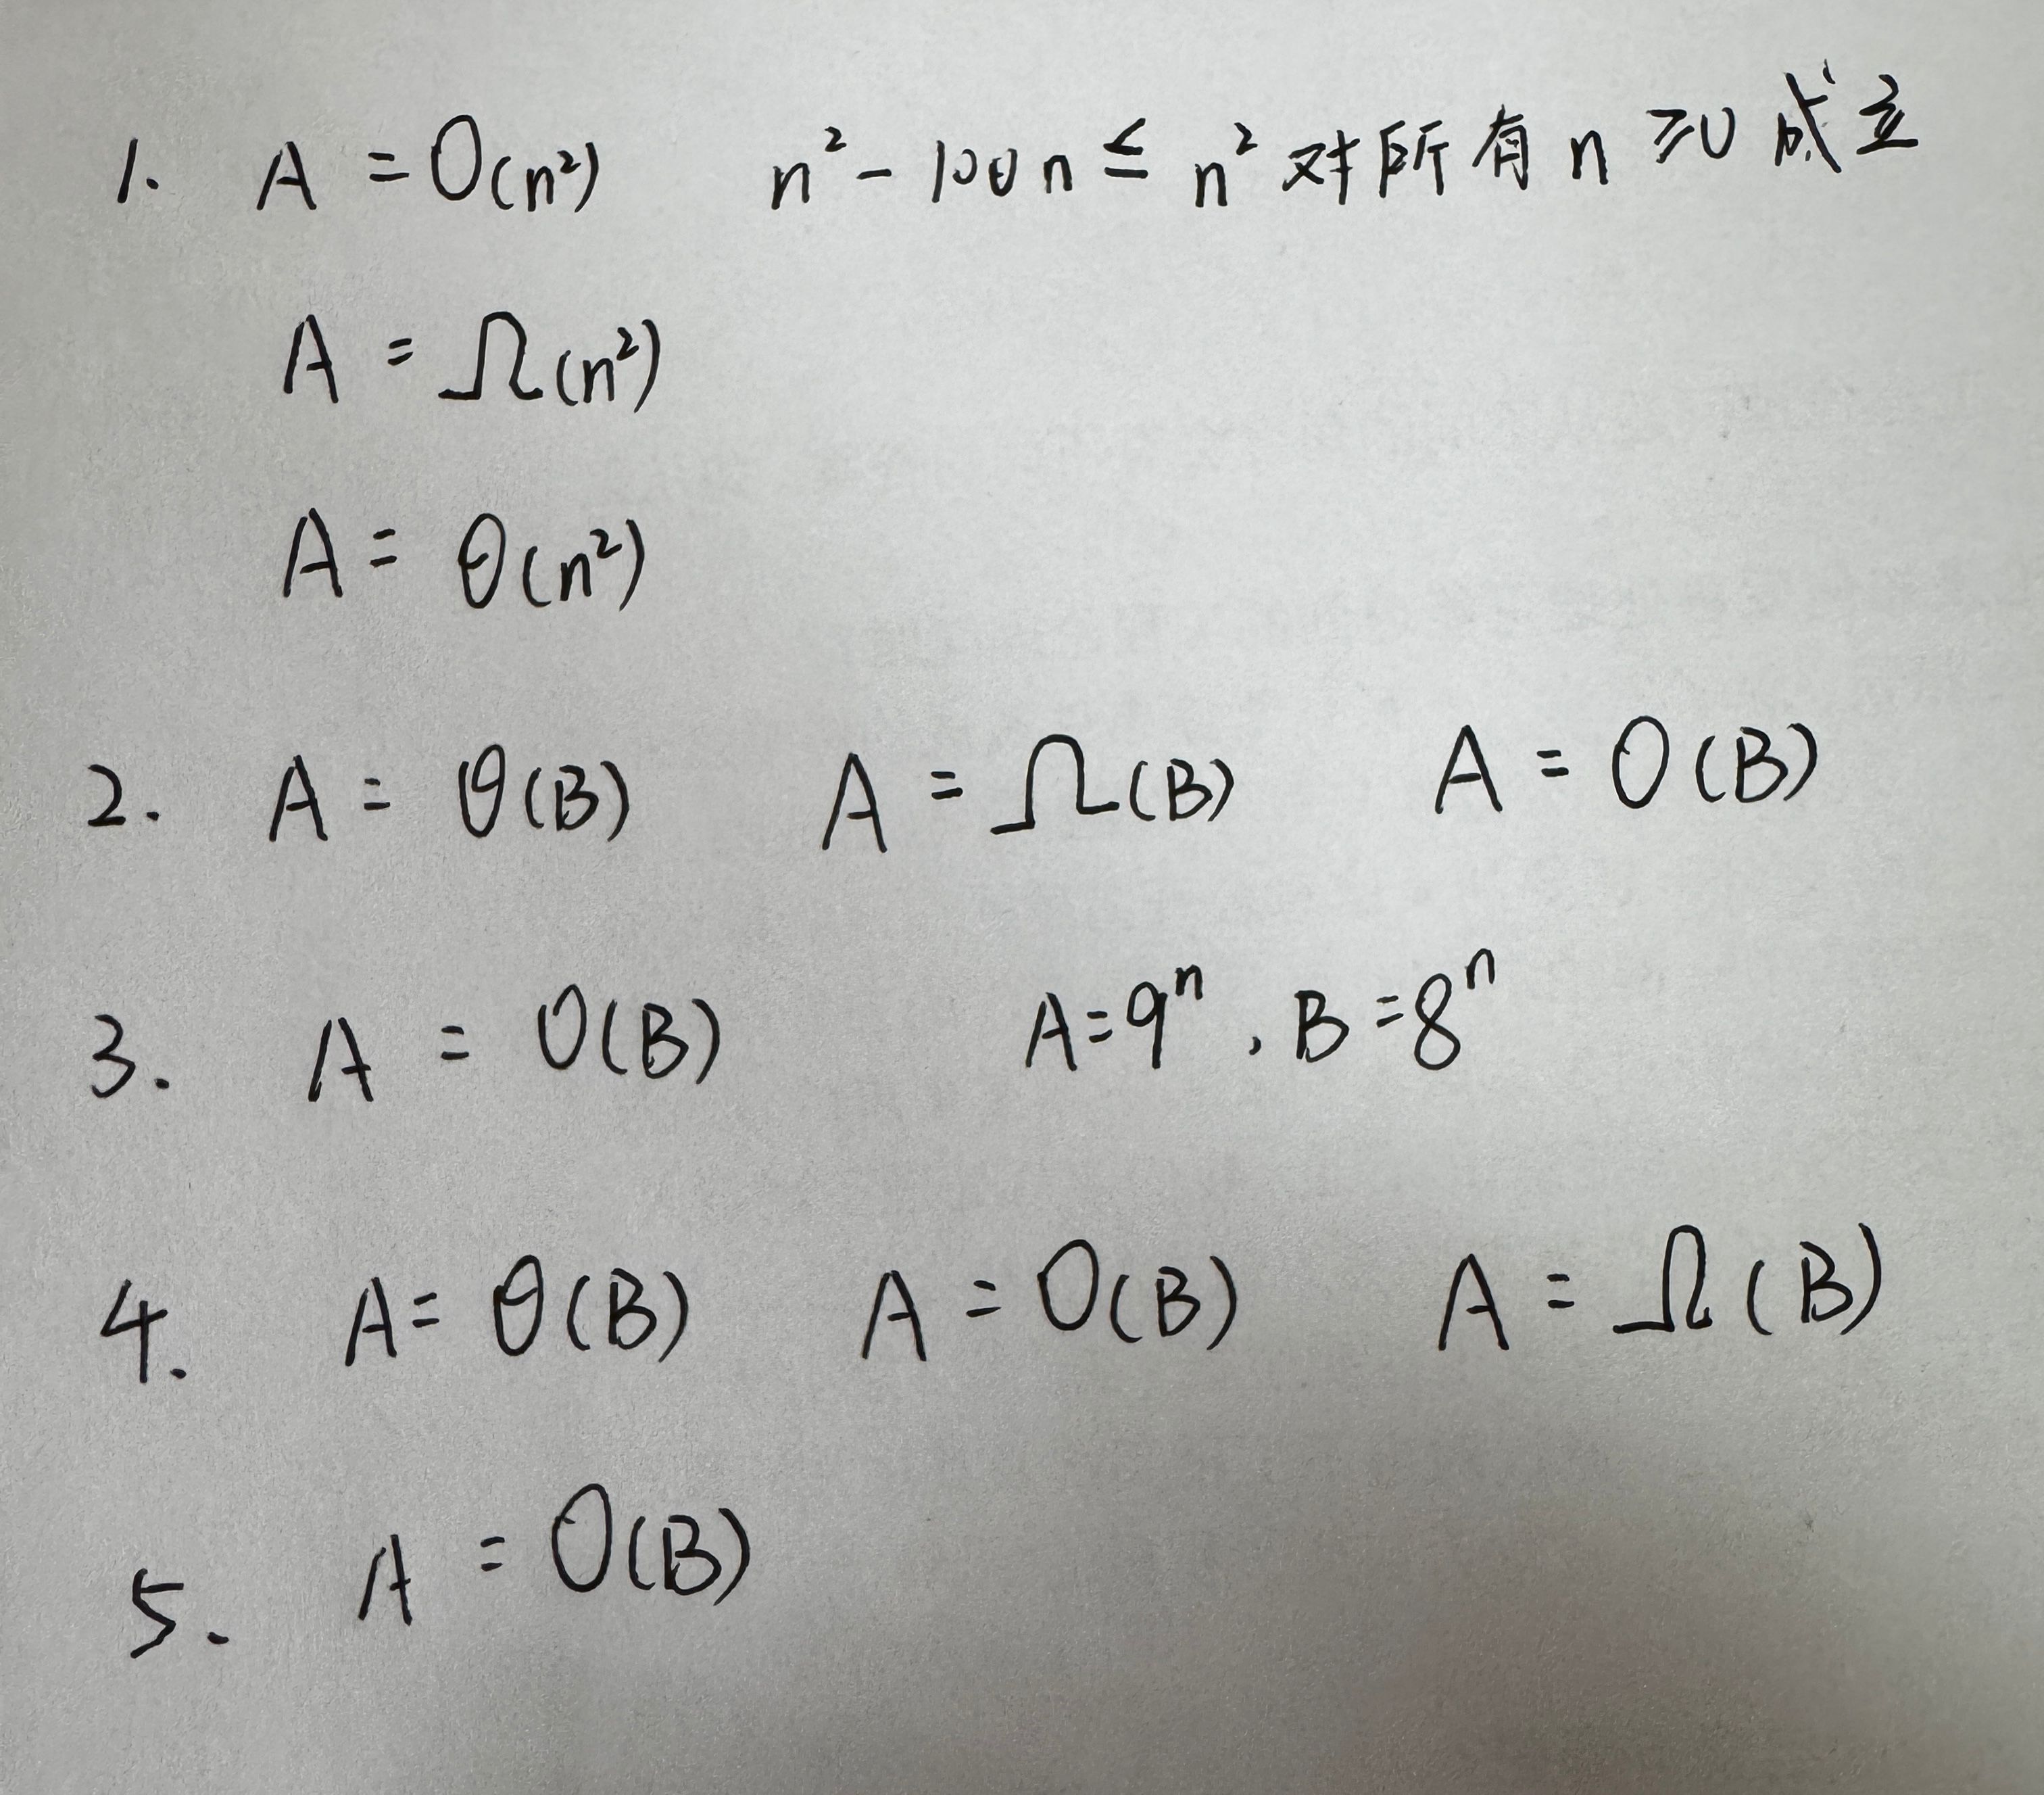 1. A = O(n²) n² - 100n ≤ n² 对所有 n ≥0 成立
A = Ω(n²)
A = θ(n²)
2. A = θ(B) A = Ω(B) A = O(B)
3. A = O(B) A=9ⁿ, B=8ⁿ
4. A= θ(B) A = O(B) A = Ω(B)
5. A = O(B)